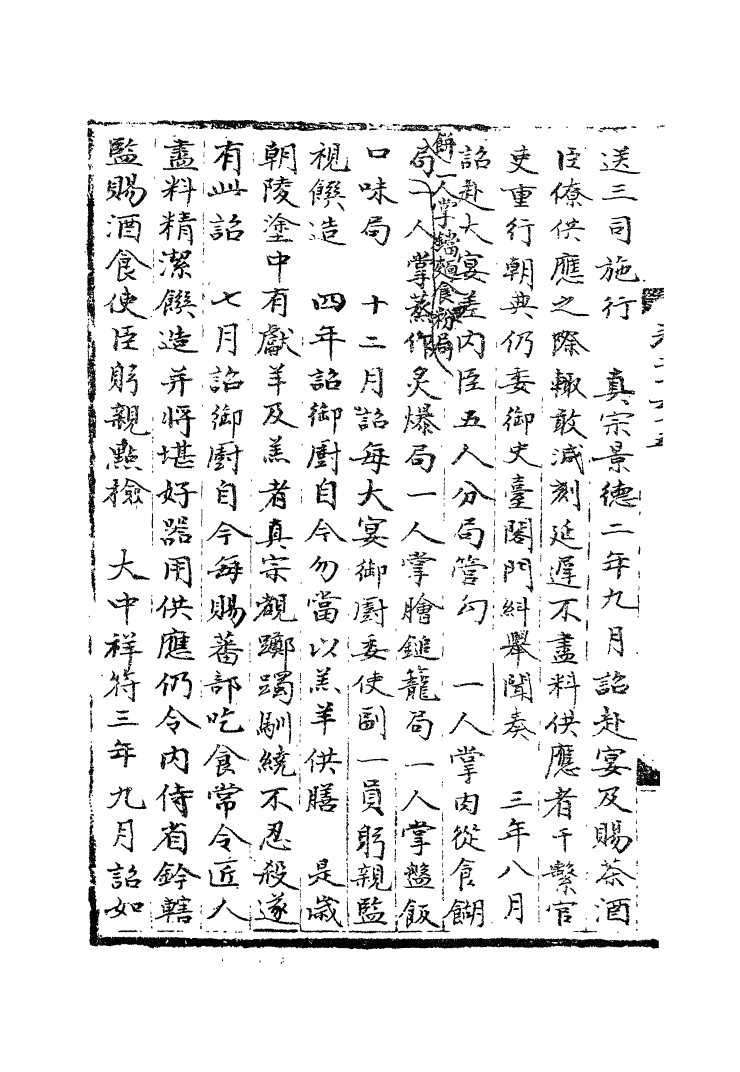 送三司施行　真宗景德二年九月詔赴宴及賜茶酒
臣僚供應之際輙敢減剋延遲不盡料供應者干繫官
吏重行朝典仍委御史臺閤門糾舉聞奏　三年八月
詔赴大宴差內臣五人分局管勾　一人掌肉從食餬
餅一人掌
麵食粉局
局一人掌蒸作炙爆局一人掌膾鎚籠局一人掌盤飯
口味局　十二月詔每大宴御厨委使副一員躬親監
視饌造　四年詔御厨自今勿當以羔羊供膳　是歲
朝陵塗中有獻羊及羔者真宗覩躑躅馴繞不忍殺遂
有此詔　七月詔御厨自今每賜蕃部吃食常令匠人
盡料精潔饌造并將堪好器用供應仍令內侍省鈐轄
監賜酒食使臣躬親點檢　大中祥符三年九月詔如